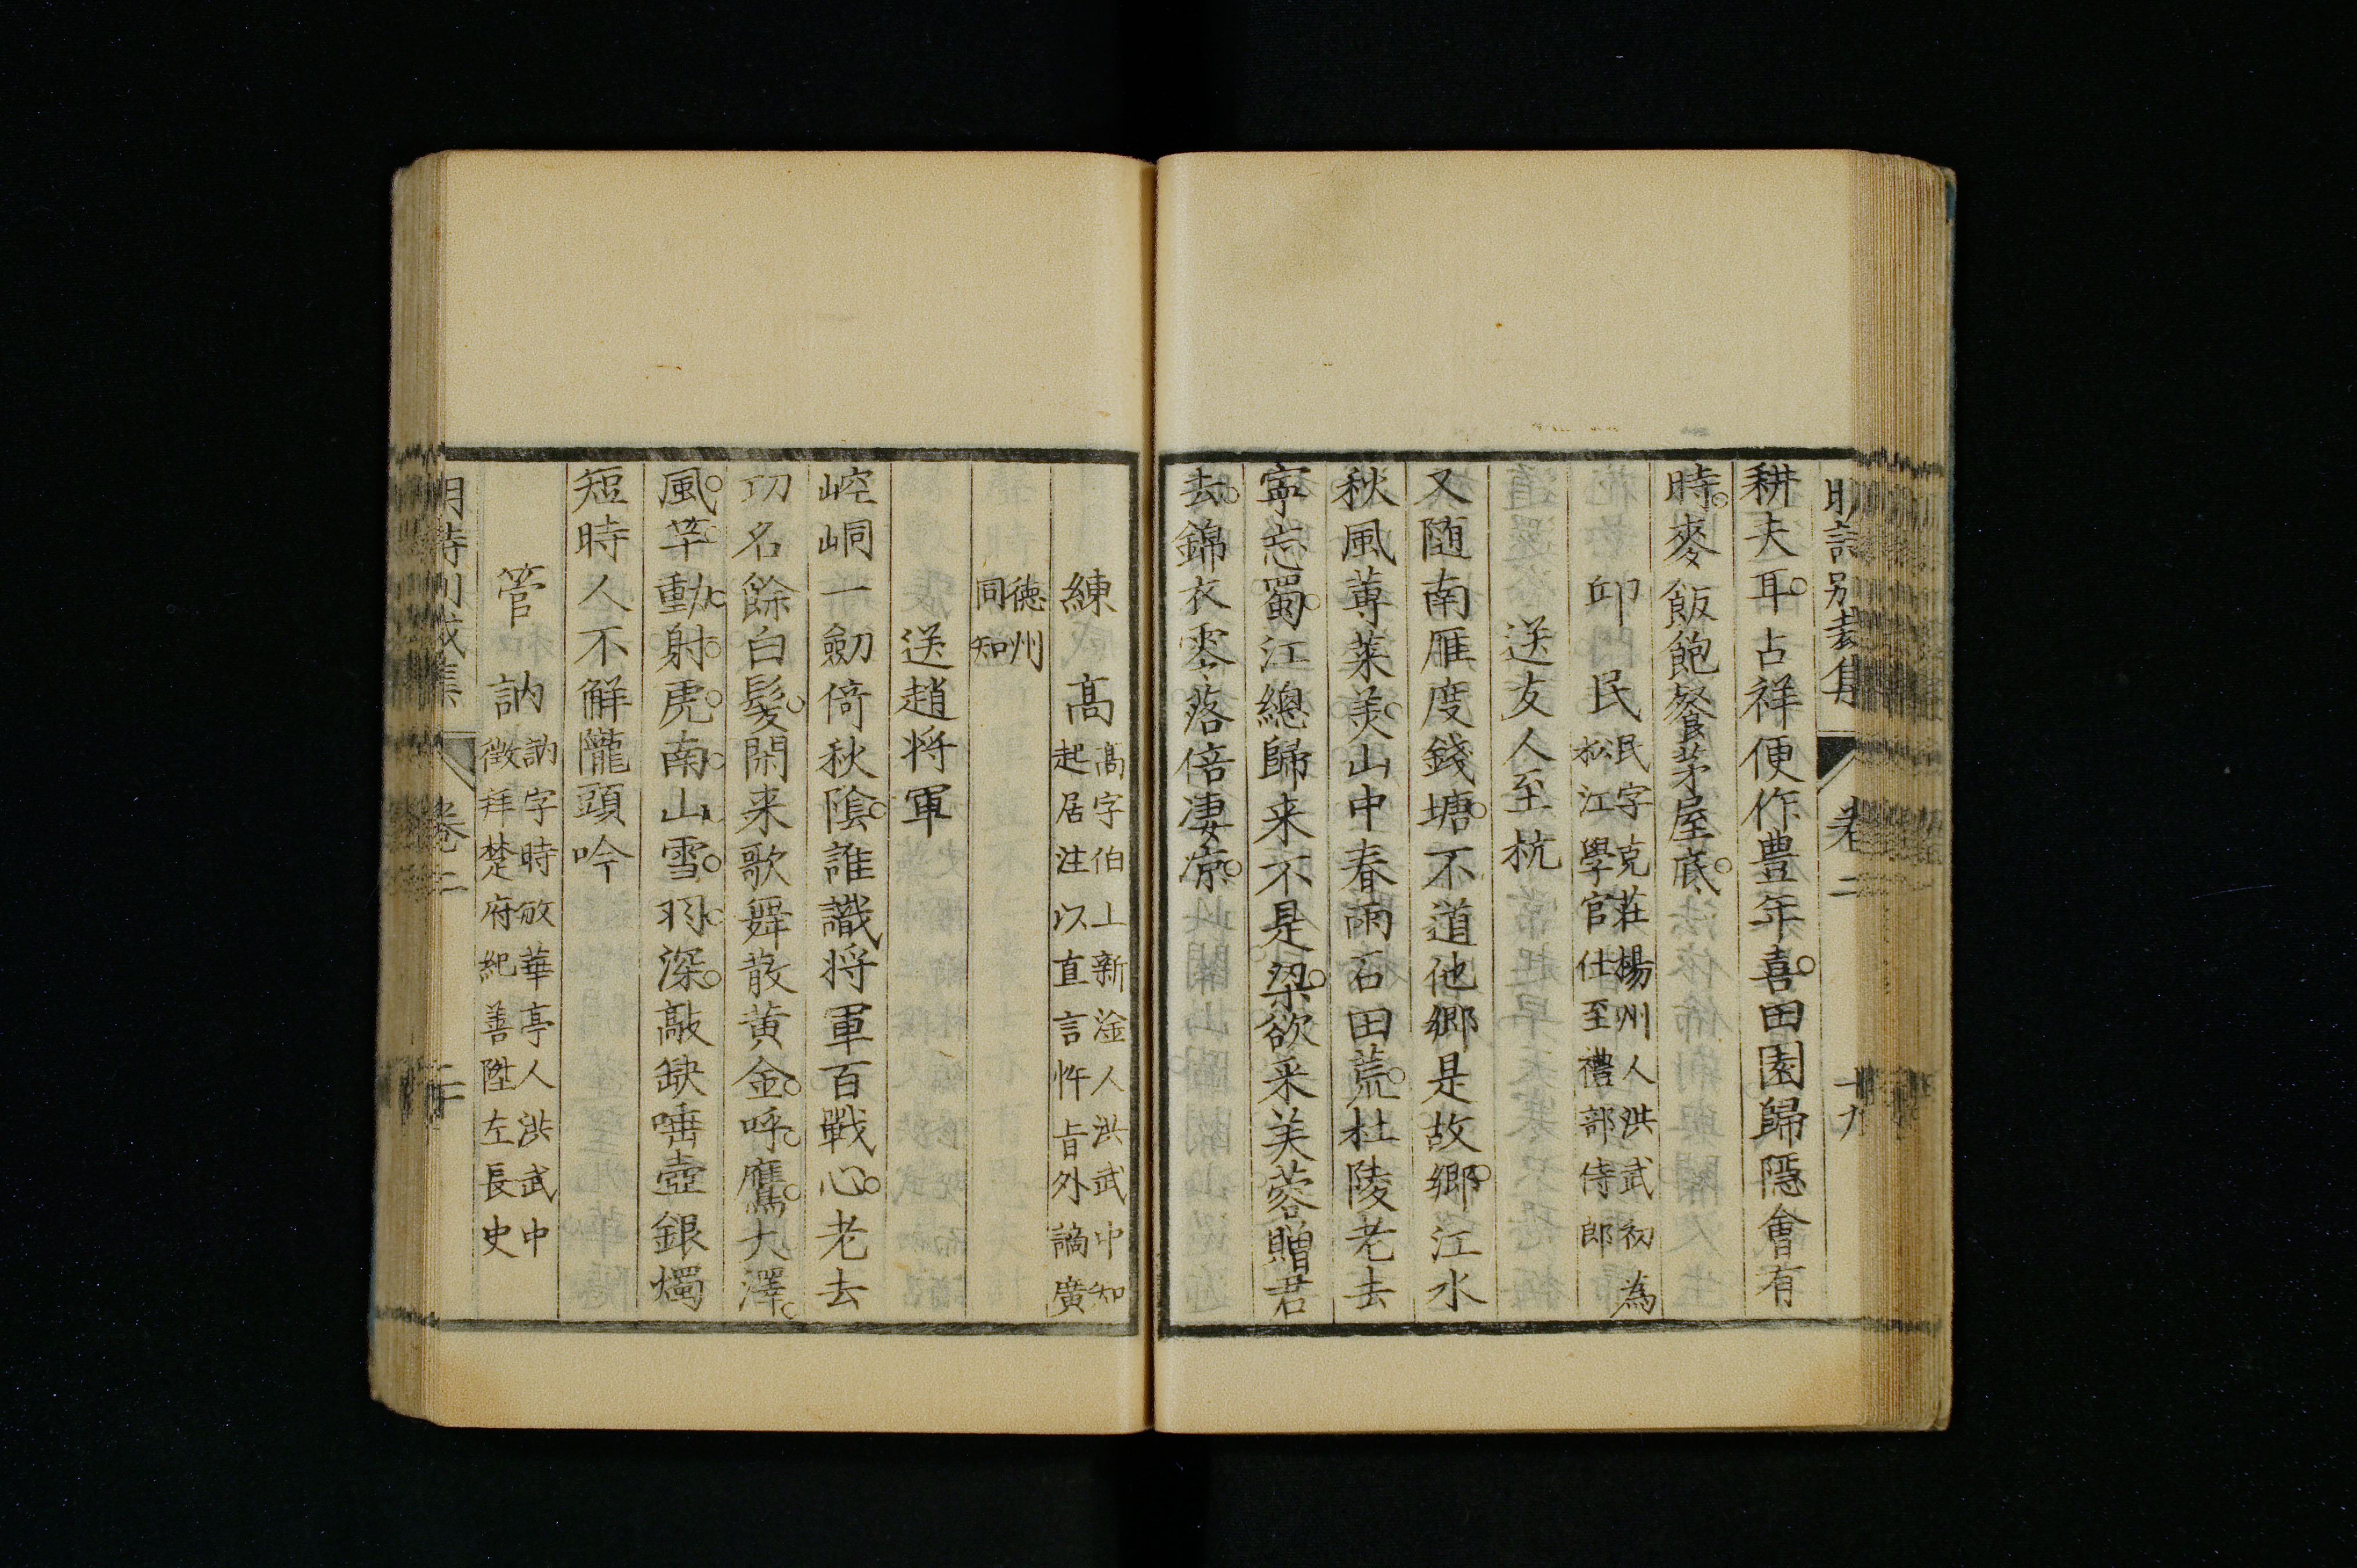 耕夫耳占祥便作豊年喜田園歸隱會有
時麥飯飽餐茅屋底
邱 民 民字克莊楊州人洪武初為
松江學官仕至禮部侍郎
送友人至杭
又随南雁度錢塘不道他鄉是故鄉江水
秋風蓴菜美山中春雨石田荒杜陵老去
寧忘蜀江總歸来不是梁欲采芙蓉贈君
去錦衣零落倍凄凉
練 高 高字伯上新淦人洪武中知
起居注以直言忤旨外謫廣
德州
同知
送趙将軍
崆峒一劒倚秋陰誰識将軍百戰心老去
功名餘白髮閑来歌舞散黄金呼鷹大澤
風竿動射虎南山雪羽深敲缺唾壺銀燭
短時人不解隴頭吟
管 訥 訥字時敏華亭人洪武中
徵拜楚府紀善陞左長史
卷二